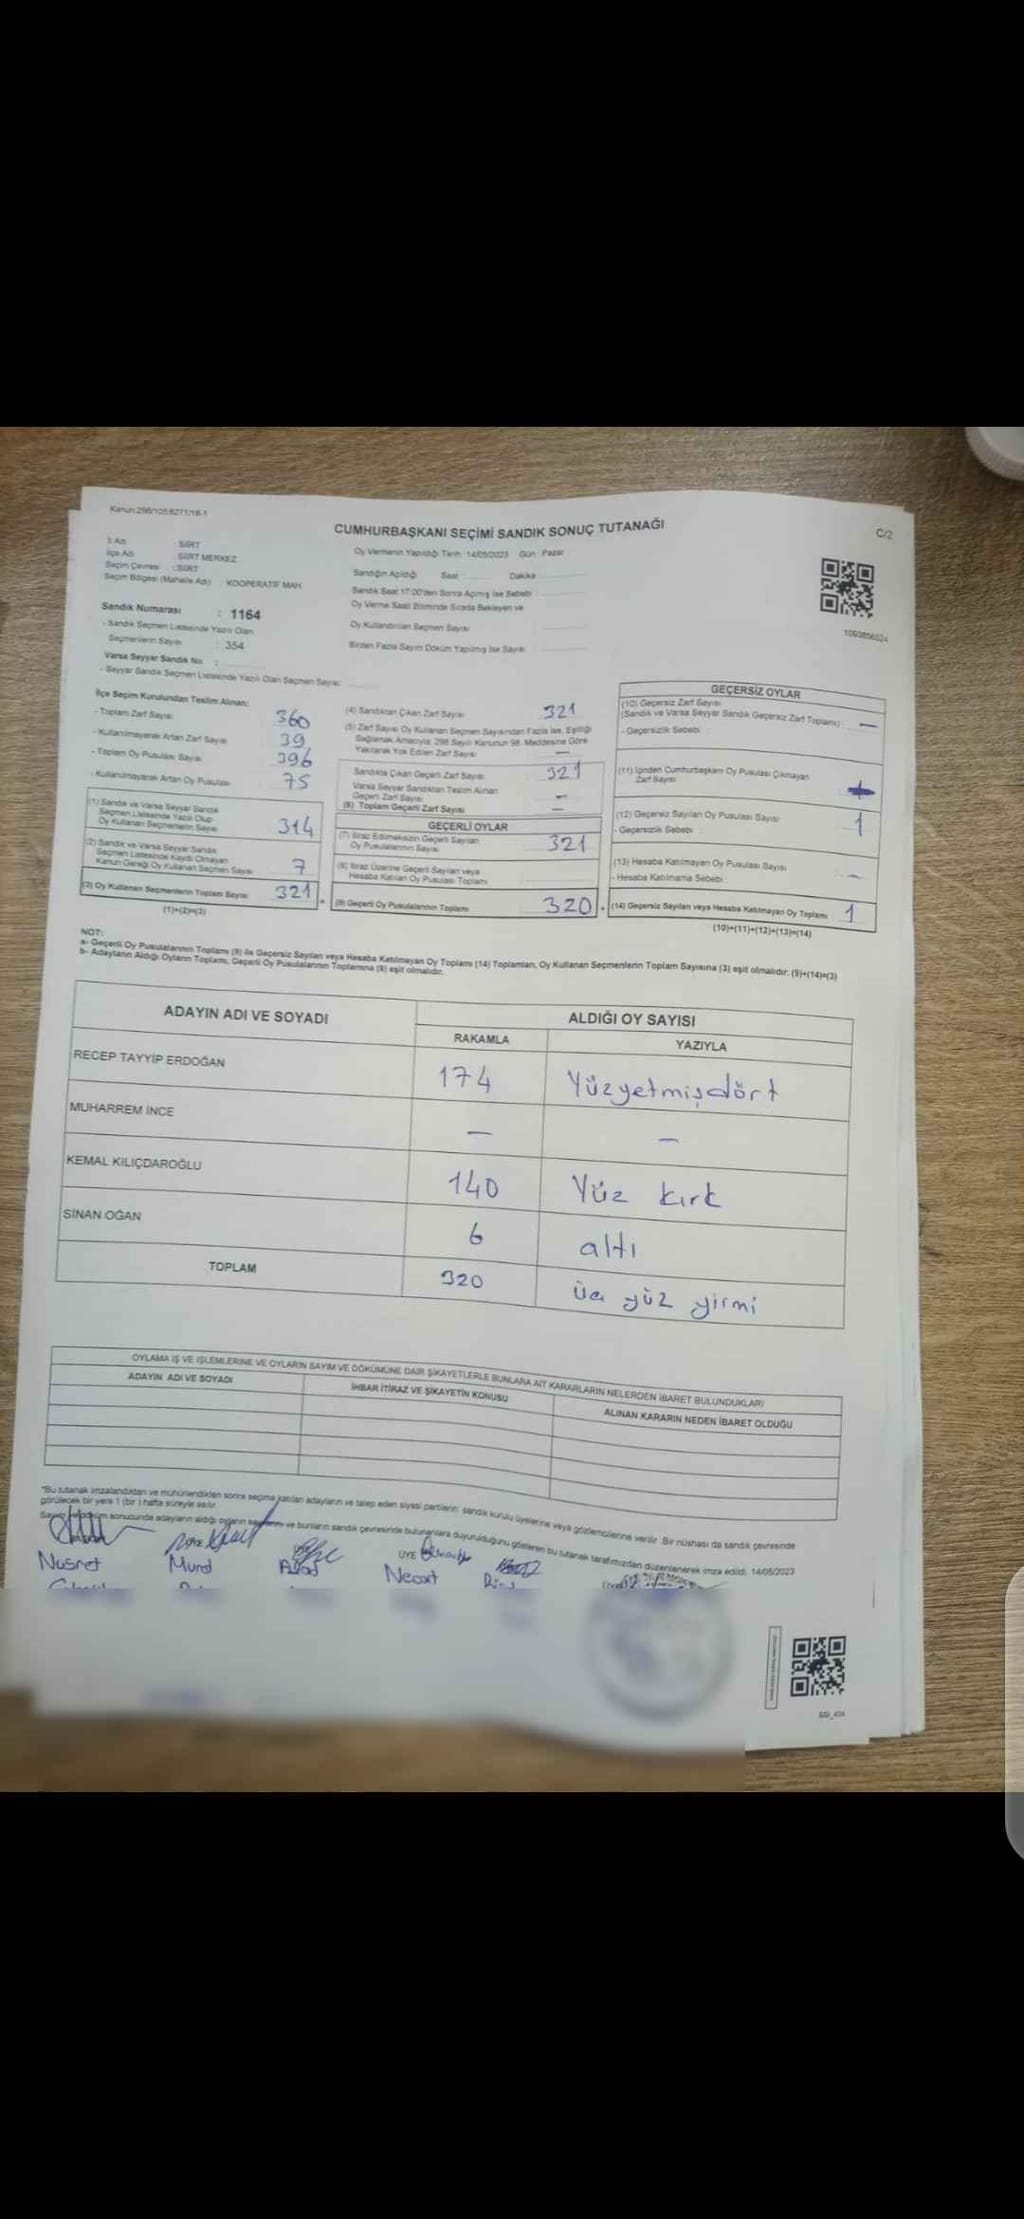 Kanun:298/105:6271/18-1
CUMHURBAŞKANI SEÇİMİ SANDIK SONUÇ TUTANAĞI
C/2
İl Adı : SİİRT
İlçe Adı : SİİRT MERKEZ
Seçim Çevresi : SİİRT
Seçim Bölgesi (Mahalle Adı) : KOOPERATİF MAH.
Sandık Numarası : 1164
- Sandık Seçmen Listesinde Yazılı Olan
Seçmenlerin Sayısı : 354
Varsa Seyyar Sandık No :
- Seyyar Sandık Seçmen Listesinde Yazılı Olan Seçmen Sayısı
Oy Vermenin Yapıldığı Tarih : 14/05/2023 Gün : Pazar
Sandığın Açıldığı Saat Dakika
Sandık Saat 17:00'den Sonra Açılmış İse Sebebi
Oy Verme Saati Bitiminde Sırada Bekleyen ve
Oy Kullandırılan Seçmen Sayısı
Birden Fazla Sayım Döküm Yapılmış İse Sayısı
İlçe Seçim Kurulundan Teslim Alınan:
- Toplam Zarf Sayısı 360
- Kullanılmayarak Artan Zarf Sayısı 39
- Toplam Oy Pusulası Sayısı 396
- Kullanılmayarak Artan Oy Pusulası 75
(1) Sandık ve Varsa Seyyar Sandık
Seçmen Listesinde Yazılı Olup
Oy Kullanan Seçmenlerin Sayısı 314
(2) Sandık ve Varsa Seyyar Sandık
Seçmen Listesinde Kaydı Olmayan
Kanun Gereği Oy Kullanan Seçmen Sayısı 7
(3) Oy Kullanan Seçmenlerin Toplam Sayısı 321
(1)+(2)=(3)
(4) Sandıktan Çıkan Zarf Sayısı 321
(5) Zarf Sayısı Oy Kullanan Seçmen Sayısından Fazla İse, Eşitliği
Sağlamak Amacıyla 298 Sayılı Kanunun 98. Maddesine Göre
Yakılarak Yok Edilen Zarf Sayısı —
Sandıkta Çıkan Geçerli Zarf Sayısı 321
Varsa Seyyar Sandıktan Teslim Alınan
Geçerli Zarf Sayısı –
(6) Toplam Geçerli Zarf Sayısı —
GEÇERLİ OYLAR
(7) İtiraz Edilmeksizin Geçerli Sayılan
Oy Pusulalarının Sayısı 321
(8) İtiraz Üzerine Geçerli Sayılan veya
Hesaba Katılan Oy Pusulası Toplamı
(9) Geçerli Oy Pusulalarının Toplamı 320
GEÇERSİZ OYLAR
(10) Geçersiz Zarf Sayısı
(Sandık ve Varsa Seyyar Sandık Geçersiz Zarf Toplamı) : —
- Geçersizlik Sebebi :
(11) İçinden Cumhurbaşkanı Oy Pusulası Çıkmayan
Zarf Sayısı
(12) Geçersiz Sayılan Oy Pusulası Sayısı 1
- Geçersizlik Sebebi :
(13) Hesaba Katılmayan Oy Pusulası Sayısı –
- Hesaba Katılmama Sebebi :
(14) Geçersiz Sayılan veya Hesaba Katılmayan Oy Toplamı 1
(10)+(11)+(12)+(13)=(14)
NOT:
a- Geçerli Oy Pusulalarının Toplamı (9) ile Geçersiz Sayılan veya Hesaba Katılmayan Oy Toplamı (14) Toplamları, Oy Kullanan Seçmenlerin Toplam Sayısına (3) eşit olmalıdır. (9)+(14)=(3)
b- Adayların Aldığı Oyların Toplamı, Geçerli Oy Pusulalarının Toplamına (9) eşit olmalıdır.
ADAYIN ADI VE SOYADI
ALDIĞI OY SAYISI
RAKAMLA YAZIYLA
RECEP TAYYİP ERDOĞAN 174 Yüzyetmişdört
MUHARREM İNCE — —
KEMAL KILIÇDAROĞLU 140 Yüz kırk
SİNAN OĞAN 6 altı
TOPLAM 320 üç yüz yirmi
OYLAMA İŞ VE İŞLEMLERİNE VE OYLARIN SAYIM VE DÖKÜMÜNE DAİR ŞİKAYETLERLE BUNLARA AİT KARARLARIN NELERDEN İBARET BULUNDUKLARI
ADAYIN ADI VE SOYADI
İHBAR İTİRAZ VE ŞİKAYETİN KONUSU
ALINAN KARARIN NEDEN İBARET OLDUĞU
*Bu tutanak imzalandıktan ve mühürlendikten sonra seçime katılan adayların ve talep eden siyasi partilerin, sandık kurulu üyelerine veya gözlemcilerine verilir. Bir nüshası da sandık çevresinde
görülecek bir yere 1 (bir) hafta süreyle asılır.
Sayım döküm sonucunda adayların aldığı oyların ve bunların sandık çevresinde bulunanlara duyurulduğunu gösteren bu tutanak tarafımızdan düzenlenerek imza edildi. 14/05/2023
ÜYE
Nusret
Murd
Necat